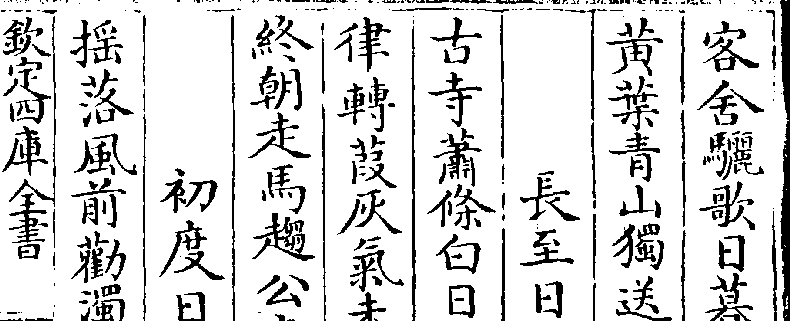 客舍驪歌日暮
黄葉青山獨送
長至日
古寺蕭條白日
律轉葭灰氣未
終朝走馬趨公
初度日
揺落風前勸濁
欽定四庫全書